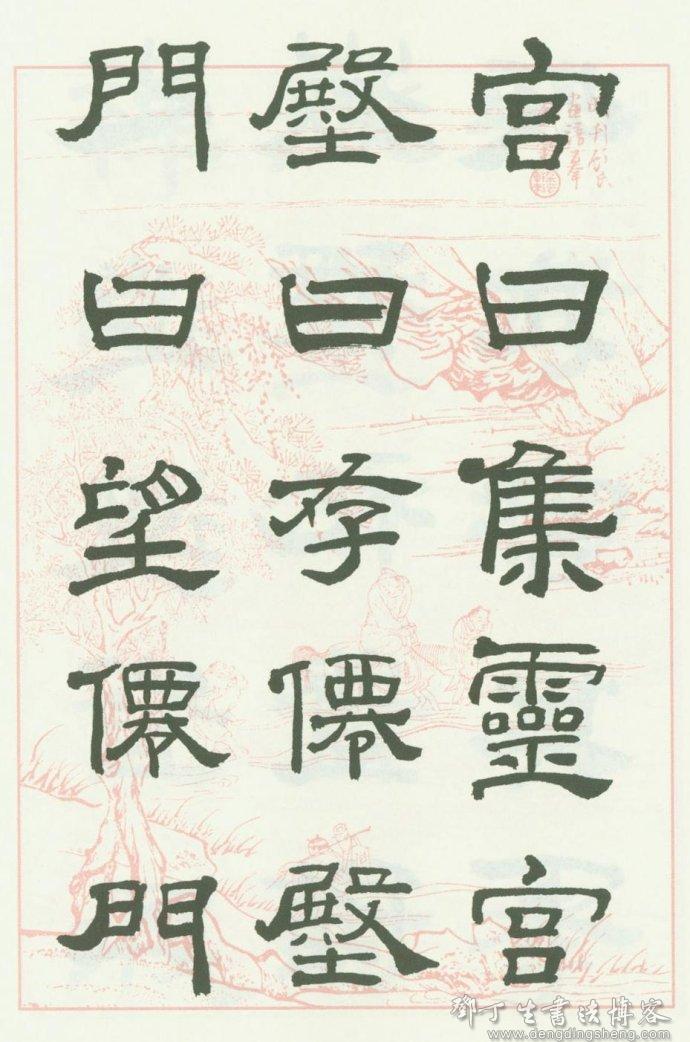 宫曰集靈宫
壂曰存僊壂
門曰望僊門
鄧丁生書法博客
www.dengdingsheng.com